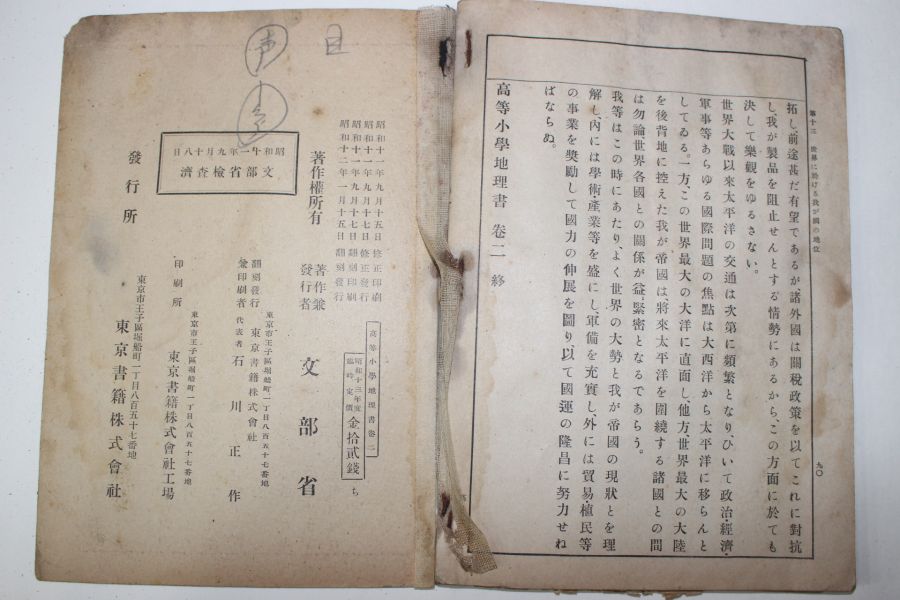 第十三 世界に於ける我が國の地位
九〇
拓し、前途甚だ有望であるが、諸外國は關稅政策を以てこれに對抗
し、我が製品を阻止せんとする情勢にあるから、この方面に於ても
決して樂觀をゆるさない。
世界大戰以來太平洋の交通は次第に頻繁となり、ひいて政治・經濟・
軍事等あらゆる國際問題の焦點は大西洋から太平洋に移らんと
してゐる。一方、この世界最大の大洋に直面し、他方、世界最大の大陸
を後背地に控えた我が帝國は、將來太平洋を圍繞する諸國との間
は勿論世界各國との關係が益〻緊密となるであらう。
我等はこの時にあたり、よく世界の大勢と我が帝國の現狀とを理
解し、內には學術產業等を盛にし、軍備を充實し、外には貿易・植民等
の事業を奬勵して國力の伸展を圖り以て國運の隆昌に努力せね
ばならぬ。
高等小學地理書 卷二 終
高等小學地理書卷二
昭和十三年度
臨時定價
金拾貳錢
ち
昭和十一年九月十五日 修正印刷
昭和十一年九月十七日 修正發行
昭和十一年九月十七日 翻刻印刷
昭和十二年一月十五日 翻刻發行
著作權所有
著作兼
發行者
文部省
翻刻發行
兼印刷者
東京市王子區堀船町一丁目八百五十七番地
東京書籍株式會社
代表者 石川正作
印刷所
東京市王子區堀船町一丁目八百五十七番地
東京書籍株式會社工場
昭和十一年九月十八日
文部省檢查濟
發行所
東京市王子區堀船町一丁目八百五十七番地
東京書籍株式會社